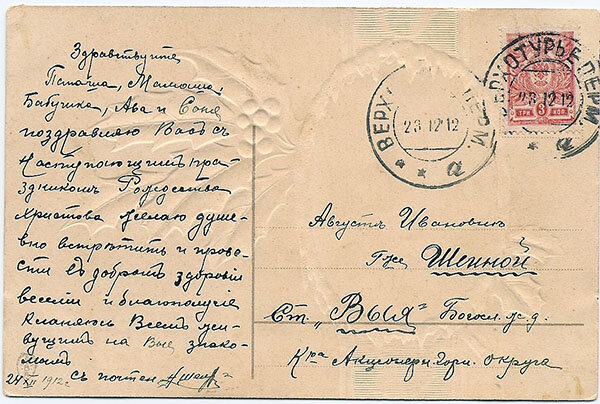 Здравствуйте
Папаша, Мамаша,
Бабушка, Ава и Соня
поздравляю Васъ съ
наступающимъ пра-
здникомъ Рождества
Христова желаю душе-
вно встрѣтить и прове-
сти въ добромъ здоровіи
весели и благополучіе
кланяюсь Всемъ жи-
вущимъ на Выѣ знако-
мымъ
24 XII 1912 г. съ почтен
ВЕРХ ПЕРМ.
23 12 12
а
ВЕРХОТУРЬЕ ПЕРМ.
23 12 12
а
3 3
ТРИ КОП
Августъ Ивановичу
Г-же Шенной
Ст. „Выя" Богосл. ж. д.
К-ра Акціонерн. горн. округа